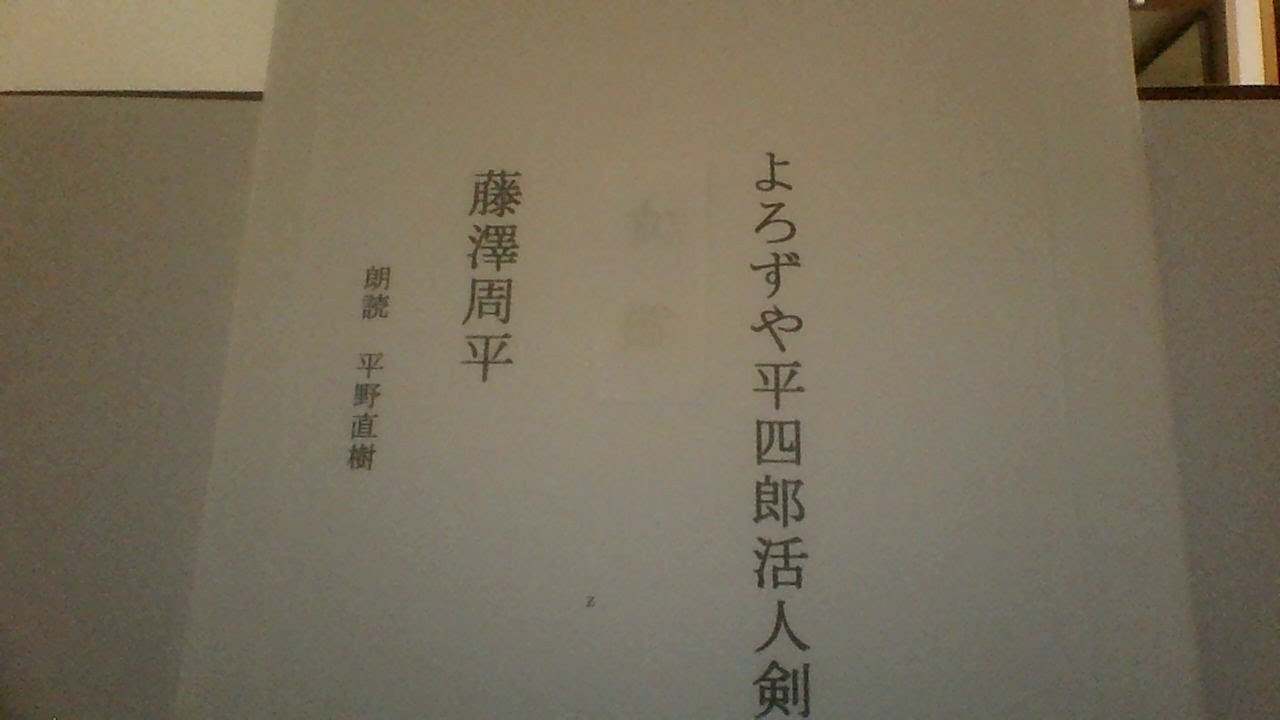 よろずや平四郎活人剣
藤澤周平
朗読 平野直樹
z